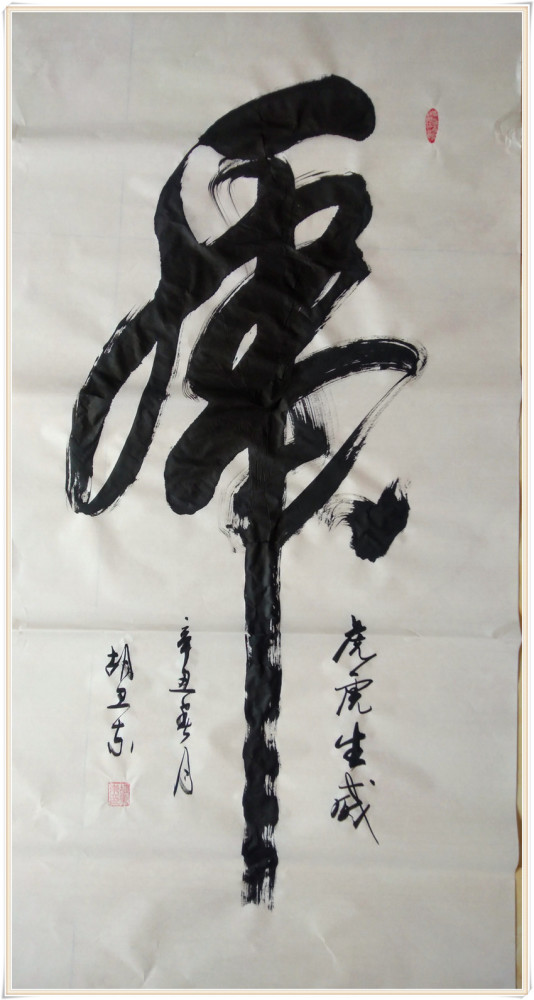 虎
虎虎生威
辛丑春月
胡卫东